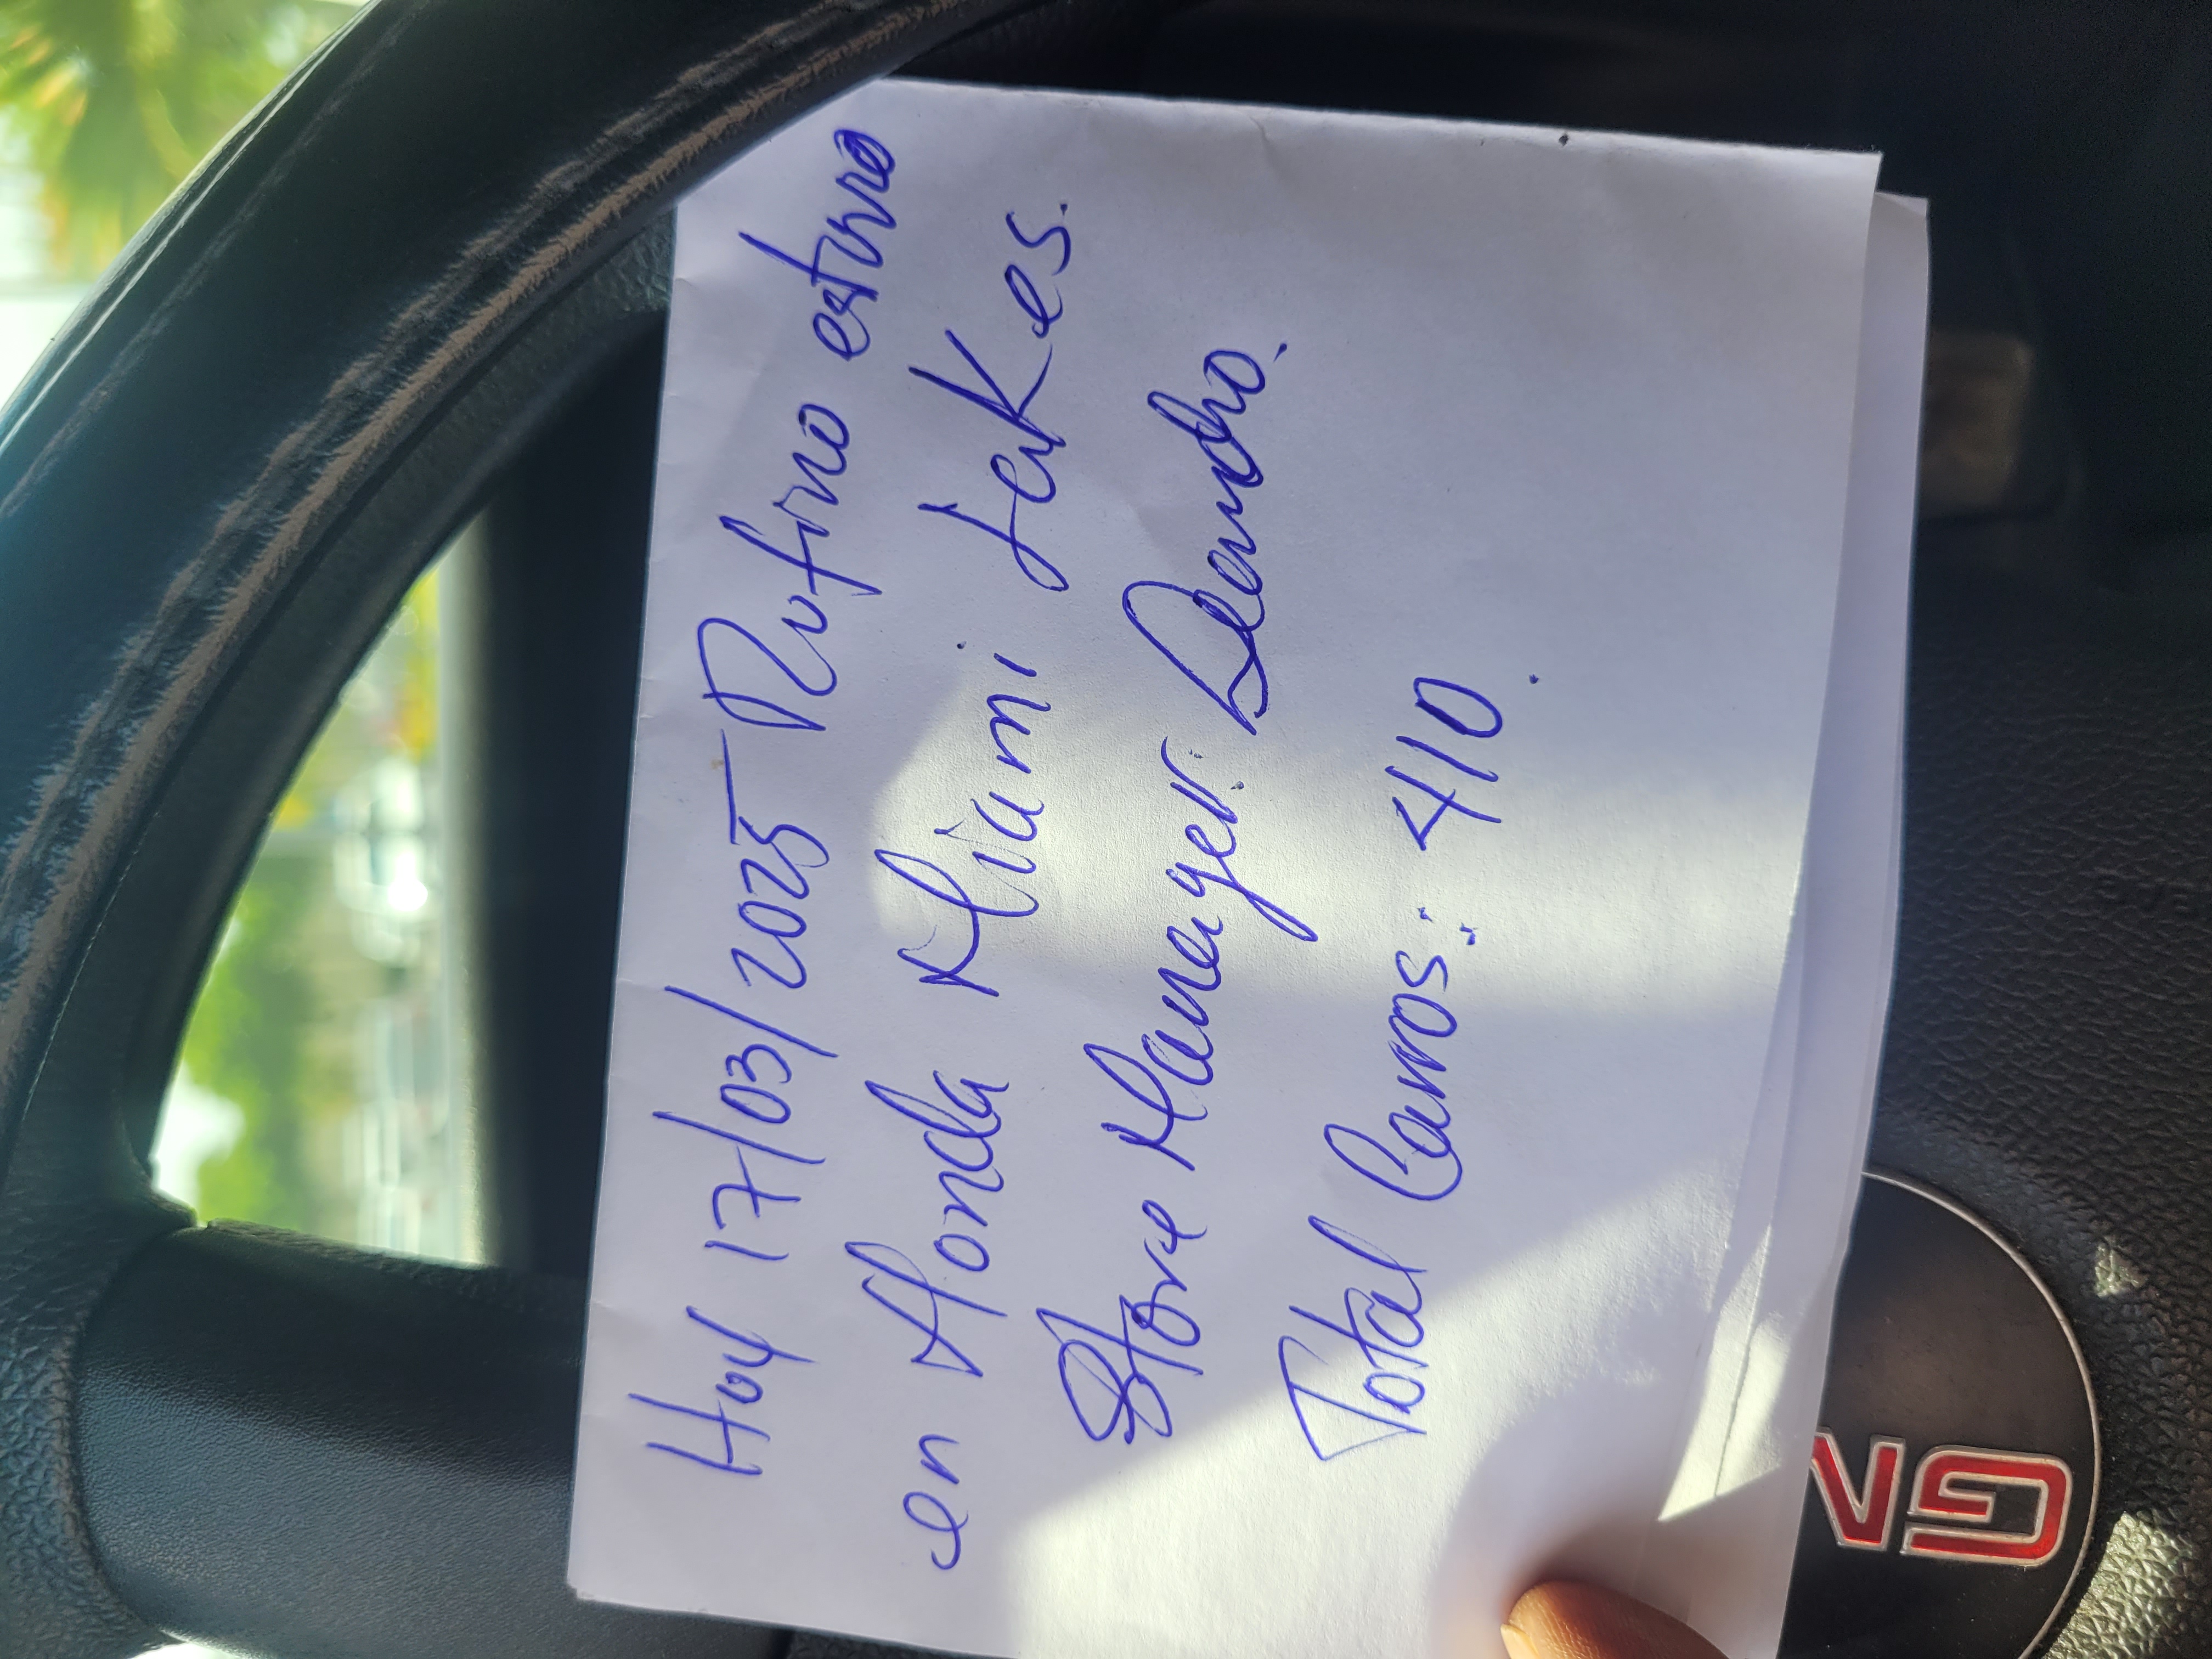 Hoy 17/03/2025 Rufino estuvo
en Honda Miami Lakes.
Store Manager: Leandro.
Total Carros: 410.
GN